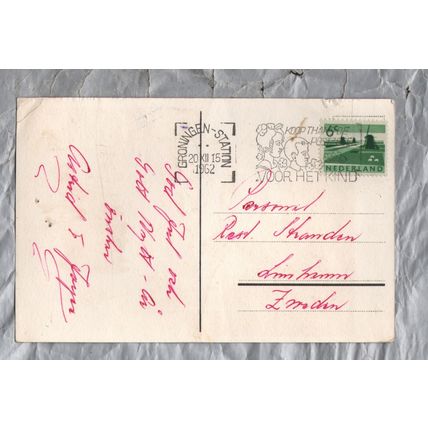 God Jul och
Gott Nytt År
önskar
Astrid &
GRONINGEN-STATION
20 XII 15
1962
KOOP THANS DE
VOOR HET KIND
6c
NEDERLAND
Personal
Rest. Stranden
Limhamn
Zweden